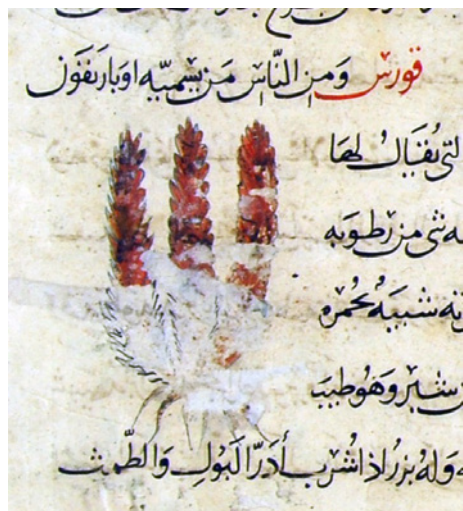 قورس ومن الناس من يسميه اوباريقون
التى يقال لها
شى من رطوبه
شبيبه بحمره
شبر وهو طيب
وله بزر اذا شرب أدر البول والطمث